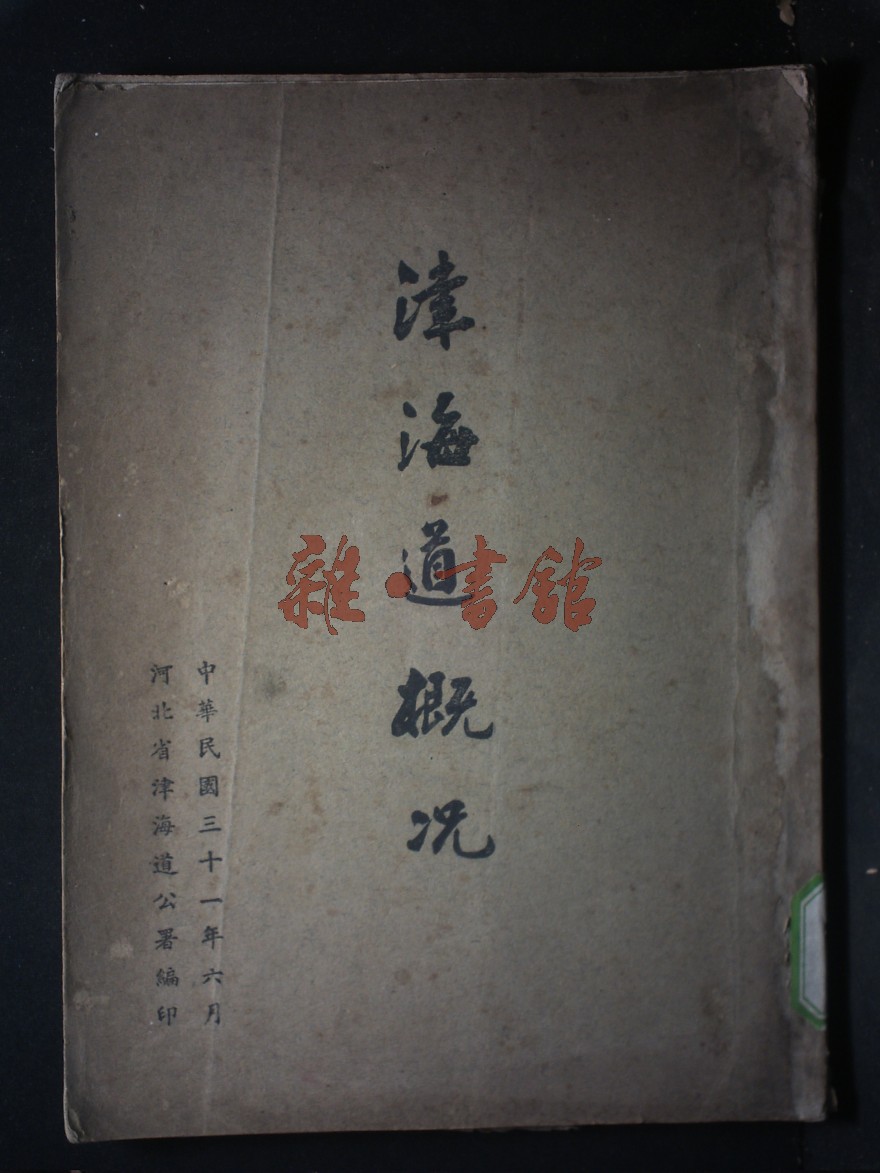 津海道概况
中華民國三十一年六月
河北省津海道公署編印
雜·書舘